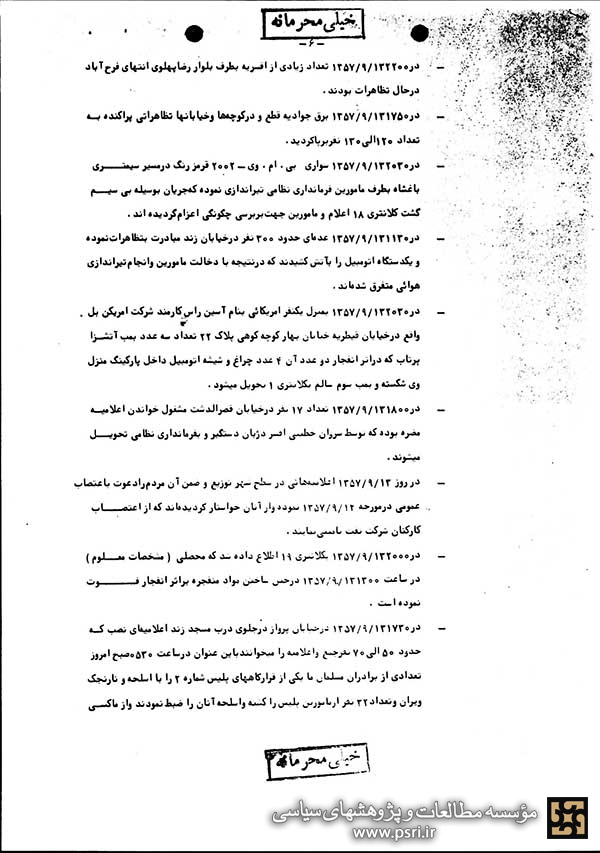 خیلی محرمانه
-۶-
- در۱۳۵۷/۹/۱۳۲۲۰۰ تعداد زیادی از افسریه بطرف بلوار رضاپهلوی انتهای فرح آباد
درحال تظاهرات بودند .
- در۱۳۵۷/۹/۱۳۱۷۵۰ برق جوادیه قطع و درکوچه‌ها وخیابانها تظاهراتی پراکنده به
تعداد ۱۲۰الی ۱۳۰ نفربرپاگردید .
- در۱۳۵۷/۹/۱۳۲۰۳۰ سواری بی . ام . وی - ۲۰۰۲ قرمز رنگ درمسیر سیمتری
باغشاه بطرف مامورین فرمانداری نظامی تیراندازی نموده که‌جریان بوسیله بی سیم
گشت کلانتری ۱۸ اعلام و مامورین جهت‌بررسی چگونگی اعزام‌گردیده اند .
- در۱۳۵۷/۹/۱۳۱۱۳۰ عده‌ای حدود ۳۰۰ نفر درخیابان زند مبادرت بتظاهرات‌نموده
و یکدستگاه اتومبیل را بآتش کشیدند که درنتیجه با دخالت مامورین وانجام‌تیراندازی
هوائی متفرق شده‌اند .
- در۱۳۵۷/۹/۱۳۲۰۳۰ بمنزل یکنفر امریکائی بنام آسین راس‌کارمند شرکت امریکن بل .
واقع درخیابان قیطریه خیابان بهار کوچه کوهی پلاک ۲۲ تعداد سه عدد بمب آتشزا
پرتاب که دراثر انفجار دو عدد آن ۴ عدد چراغ و شیشه اتومبیل داخل پارکینگ منزل
وی شکسته و بمب سوم سالم بکلانتری ۱ تحویل میشود .
- در۱۳۵۷/۹/۱۳۱۸۰۰ تعداد ۱۷ نفر درخیابان قصرالدشت مشغول خواندن اعلامیه
مضره بوده که توسط سروان خطیبی افسر دژبان دستگیر و بفرمانداری نظامی تحویل
میشوند .
- در روز ۱۳۵۷/۹/۱۳ اعلامیه‌هائی در سطح شهر توزیع و ضمن آن مردم‌رادعوت باعتصاب
عمومی درمورخه ۱۳۵۷/۹/۱۴ نموده واز آنان خواستار گردیده‌اند که از اعتصاب
کارکنان شرکت نفت
- در۱۳۵۷/۹/۱۳۲۰۰۰ بکلانتری ۱۹ اطلاع داده شد که محصلی ( مشخصات معلوم )
در ساعت ۱۳۵۷/۹/۱۳۱۳۰۰ درحین ساختن مواد منفجره براثر انفجار فوت
نموده است .
- در۱۳۵۷/۹/۱۳۱۷۳۰ درخیابان پرواز درجلوی درب مسجد زند اعلامیه‌ای نصب که
حدود ۵۰ الی ۷۰ نفرجمع واعلامیه را میخواندباین عنوان درساعت ۰۵۳۰صبح امروز
تعدادی از برادران مسلمان ما یکی از قرارگاههای پلیس شماره ۲ را با اسلحه و نارنجک
ویران وتعداد۳۲ نفر ازمامورین پلیس را کشته واسلحه آنان را ضبط نمودند واز ماکسی
خیلی محرمانه
مؤسسه مطالعات و پژوهشهای سیاسی
www.psri.ir